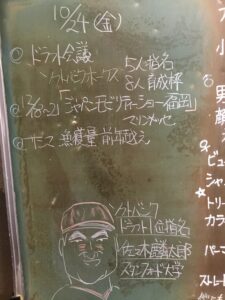 10/24(金)
◎ ドラフト会議
ソフトバンクホークス 5人指名
8人 育成枠
「ジャパンモビリティーショー福岡」
マリンメッセ
◎ サンマ 漁獲量 前年越え
ソフトバンク
ドラフト1位指名
佐々木麟太郎
スタンフォード大学
小
男
顔
ビュー
シャン
トリー
カラ
パーマ
ストレート